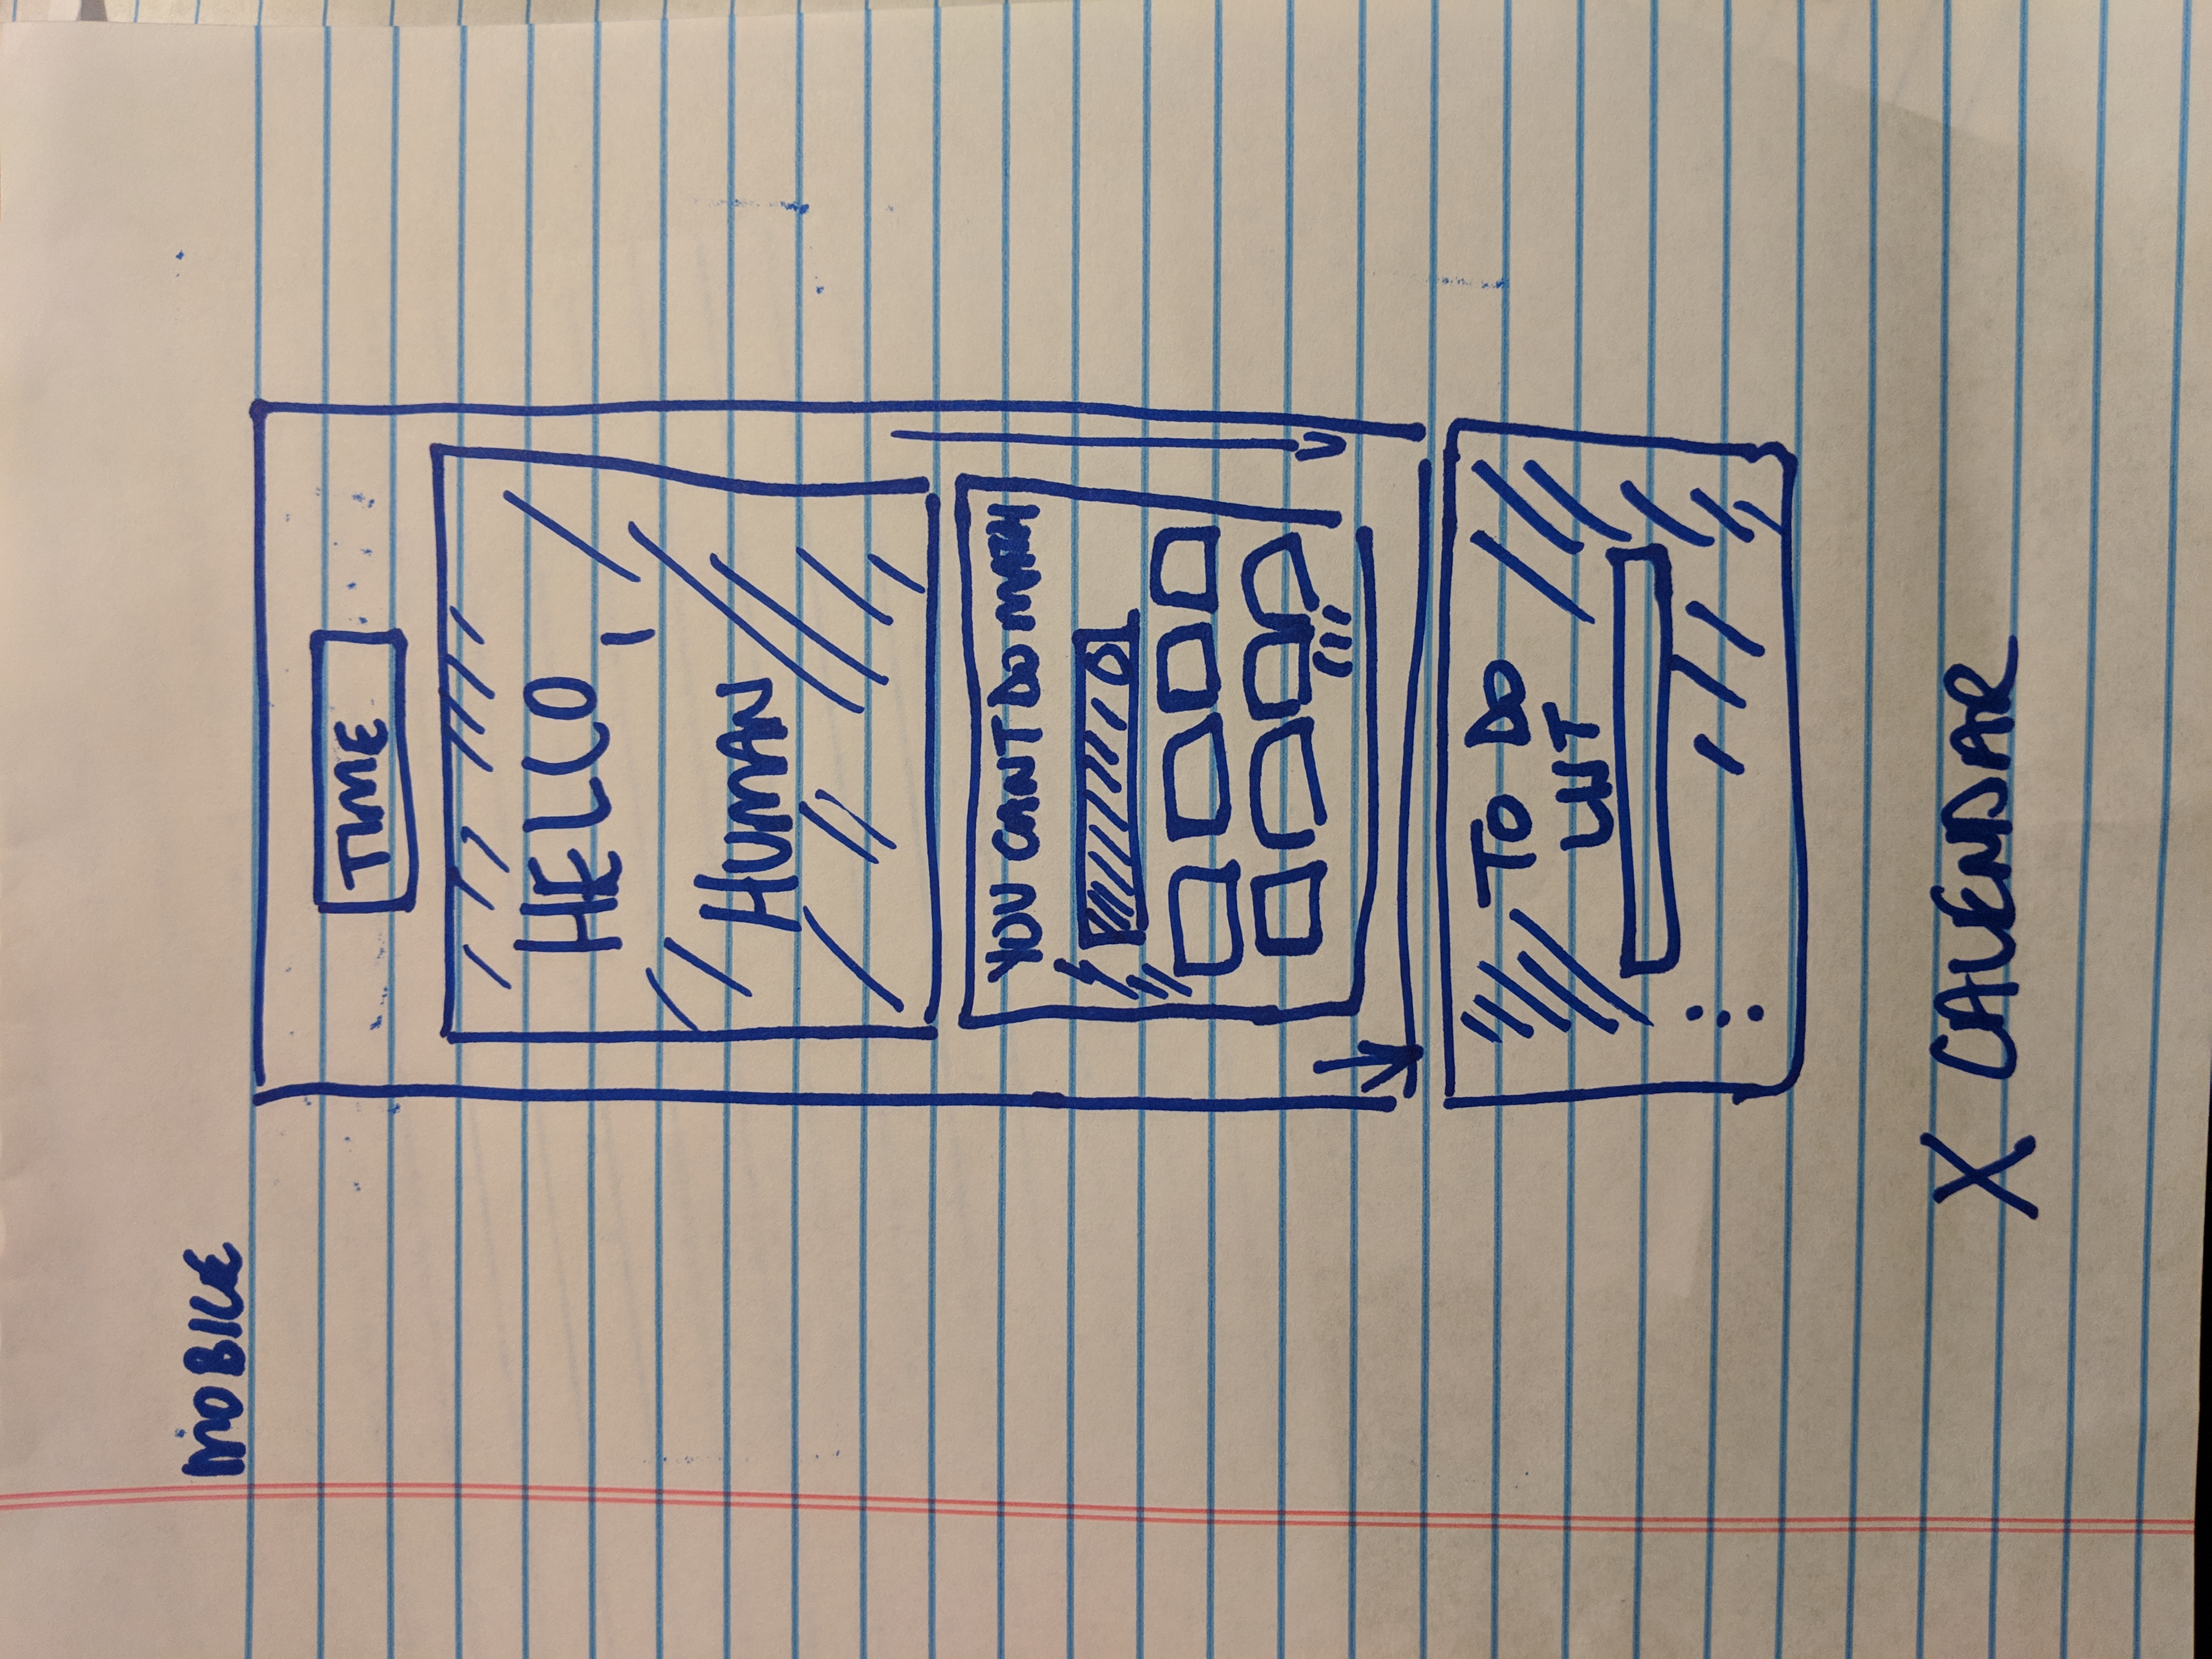 MOBILE
TIME
HELLO,
HUMAN
YOU CANT DO MATH
0
TO DO
LIST
X CALENDAR